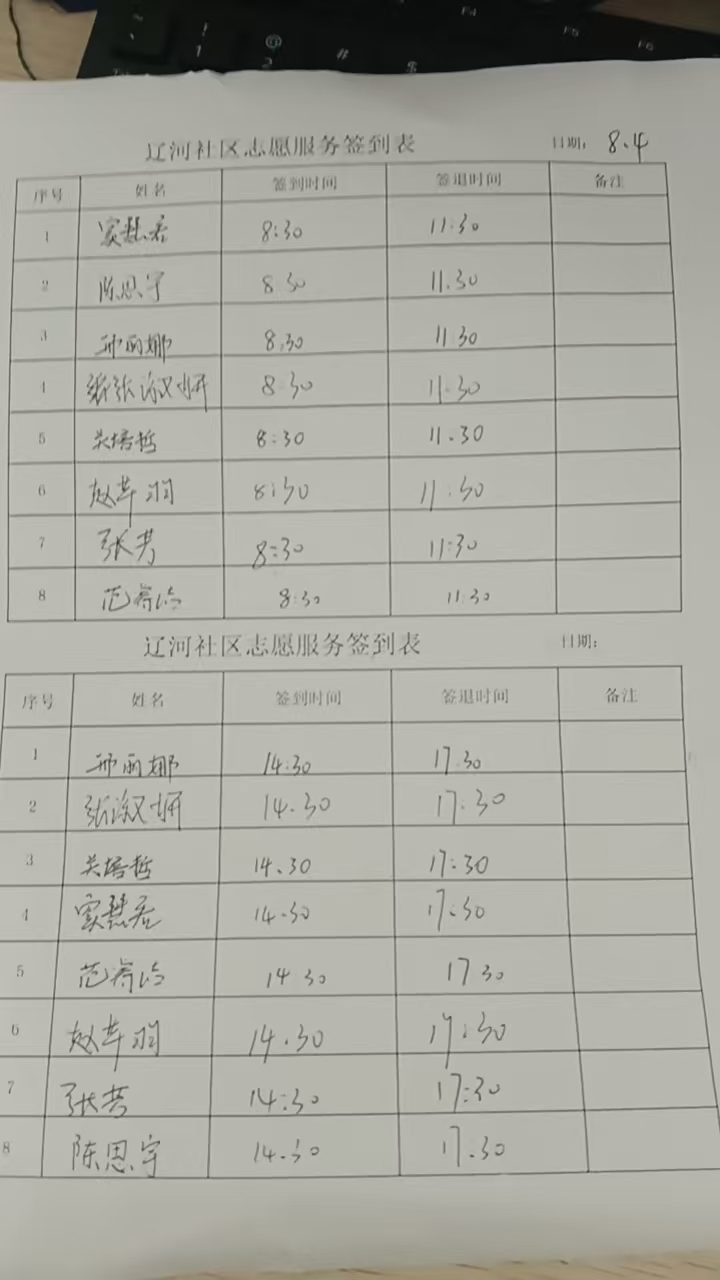 辽河社区志愿服务签到表 日期: 8.4
序号 姓名 签到时间 签退时间 备注
1 窦慧君 8:30 11:30
2 陈思宇 8:30 11.30
3 孙丽娜 8.30 11.30
4 张淑妍 8:30 11:30
5 关培哲 8:30 11.30
6 赵苹羽 8:30 11:30
7 张芳 8:30 11:30
8 8:30 11.30
辽河社区志愿服务签到表 日期:
序号 姓名 签到时间 签退时间 备注
1 孙丽娜 14:30 17.30
2 张淑妍 14.30 17:30
3 关培哲 14.30 17:30
4 窦慧君 14.30 17.30
5 14 30 17 30
6 赵苹羽 14.30 17.30
7 张芳 14:30 17:30
8 陈思宇 14.30 17.30